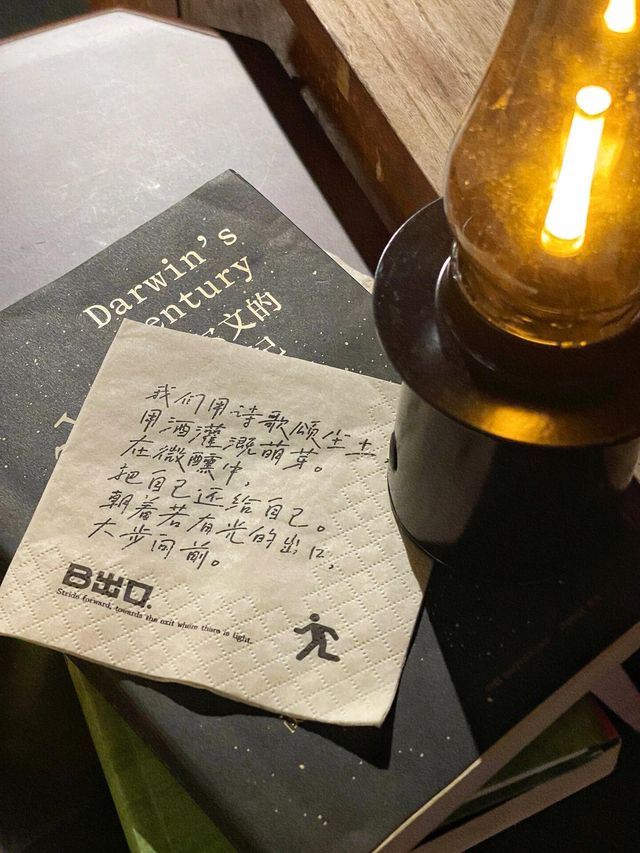 Darwin's
entury
文的
我们用诗歌颂尘土
用酒灌溉萌芽。
在微醺中,
把自己还给自己。
朝着若有光的出口,
大步向前。
B出口.
Stride forward, towards the exit where there is light.